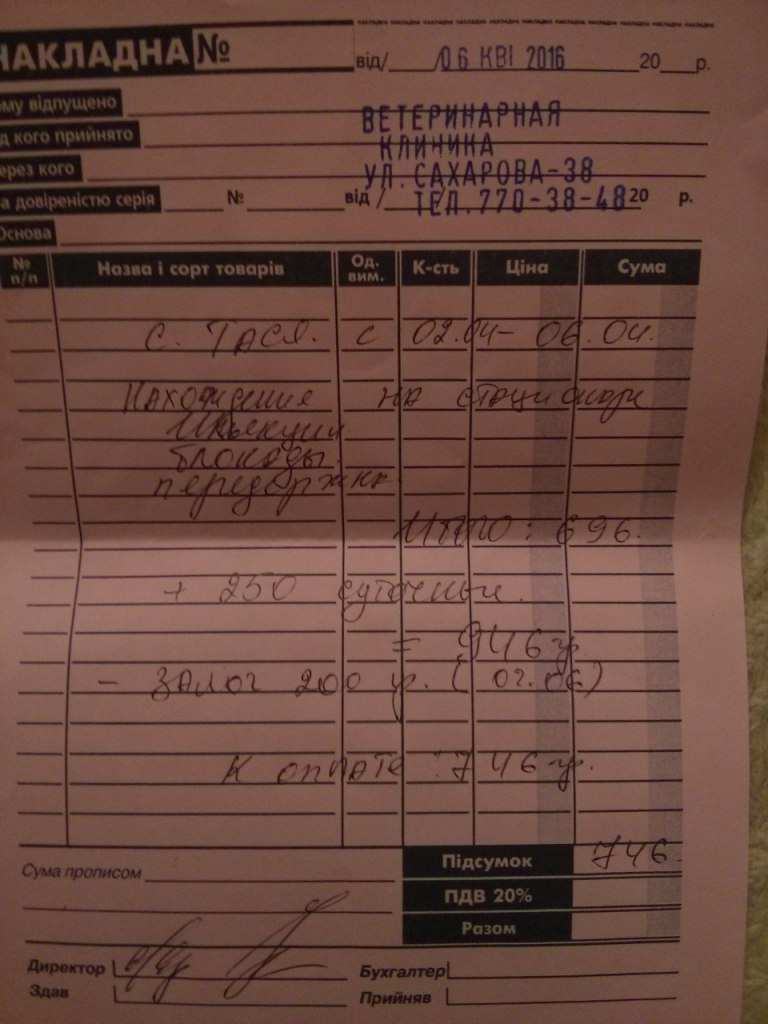 накладна накладна накладна накладна накладна накладна накладна накладна
НАКЛАДНА №
від/ 06 КВІ 2016 20 р.
ому відпущено
ВЕТЕРИНАРНАЯ
д кого прийнято
КЛИНИКА
ерез кого
УЛ. САХАРОВА-38
а довіреністю серія № від / 20 р.
ТЕЛ. 770-38-48
Основа
№ п/п Назва і сорт товарів Од. вим. К-сть Ціна Сума
С. ТАСЯ. с 02.04 - 06.04.
Нахождение на стационаре
Инъекции
блокады.
передержка
ИТОГО : 696.
+ 250 суточные.
= 946 гр.
- ЗАЛОГ 200 гр. (
К оплате : 746 гр.
Підсумок 746
Сума прописом
ПДВ 20%
Разом
Директор Бухгалтер
Здав Прийняв